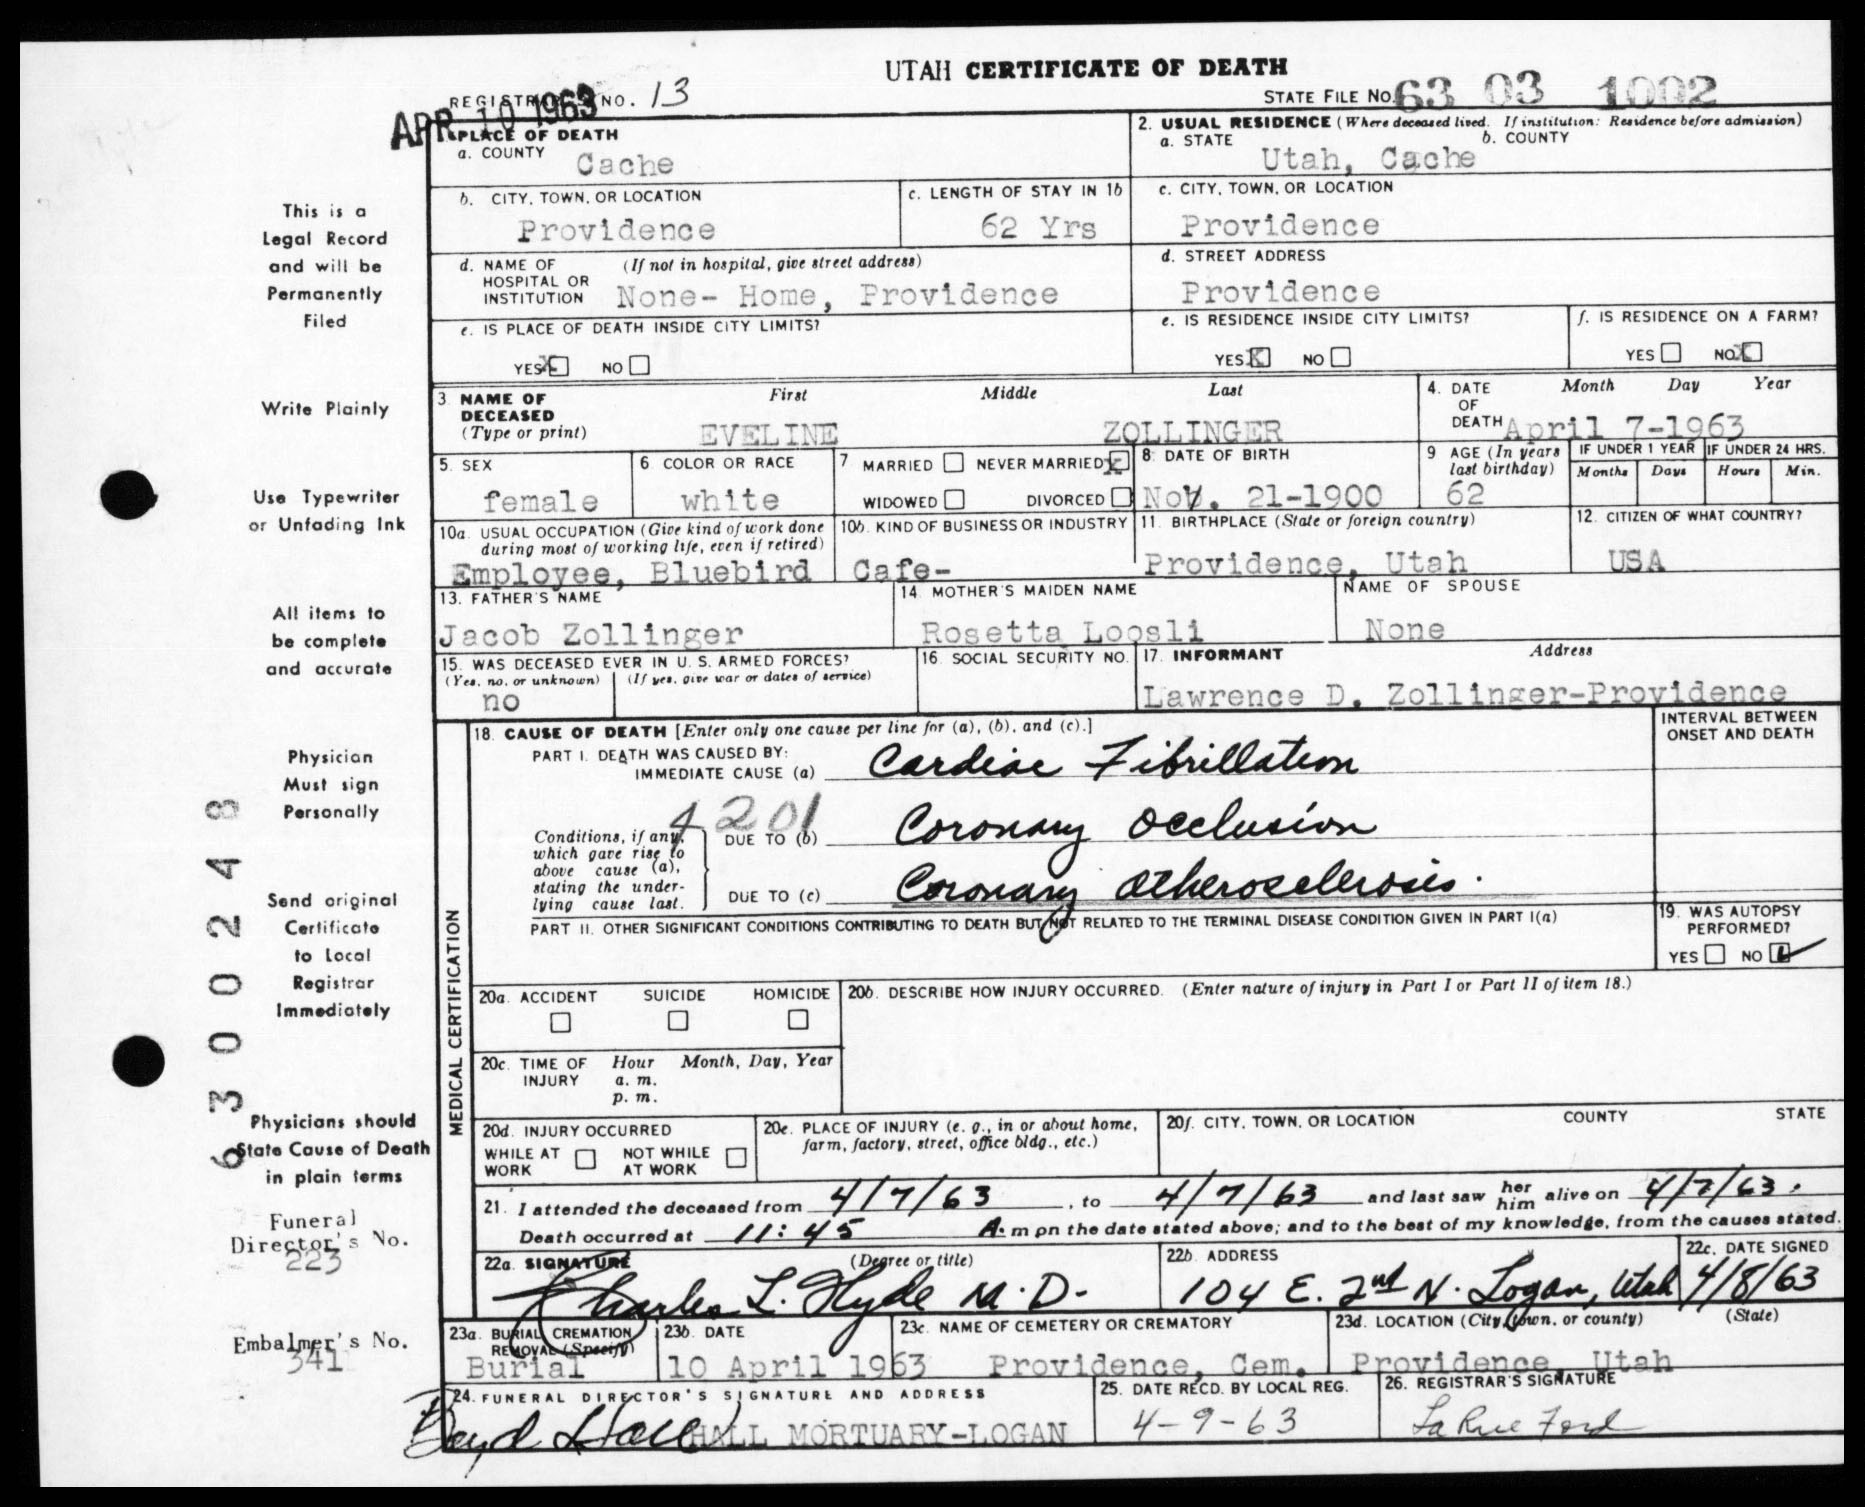 UTAH CERTIFICATE OF DEATH
REGISTRAR'S NO. 13
STATE FILE NO. 63 03 1002
APR 10 1963
PLACE OF DEATH
a. COUNTY Cache
2. USUAL RESIDENCE (Where deceased lived. If institution: Residence before admission)
a. STATE b. COUNTY
Utah, Cache
b. CITY, TOWN, OR LOCATION
Providence
c. LENGTH OF STAY IN 1b
62 Yrs
c. CITY, TOWN, OR LOCATION
Providence
d. NAME OF HOSPITAL OR INSTITUTION (If not in hospital, give street address)
None- Home, Providence
d. STREET ADDRESS
Providence
e. IS PLACE OF DEATH INSIDE CITY LIMITS?
YES X NO
e. IS RESIDENCE INSIDE CITY LIMITS?
YES X NO
f. IS RESIDENCE ON A FARM?
YES NO X
3. NAME OF DECEASED (Type or print)
First Middle Last
EVELINE ZOLLINGER
4. DATE OF DEATH Month Day Year
April 7-1963
5. SEX
female
6 COLOR OR RACE
white
7 MARRIED NEVER MARRIED X
WIDOWED DIVORCED
8. DATE OF BIRTH
Nov. 21-1900
9 AGE (In years last birthday)
62
IF UNDER 1 YEAR
Months Days
IF UNDER 24 HRS.
Hours Min.
10a. USUAL OCCUPATION (Give kind of work done during most of working life, even if retired)
Employee, Bluebird
10b. KIND OF BUSINESS OR INDUSTRY
Cafe-
11. BIRTHPLACE (State or foreign country)
Providence, Utah
12. CITIZEN OF WHAT COUNTRY?
USA
13. FATHER'S NAME
Jacob Zollinger
14. MOTHER'S MAIDEN NAME
Rosetta Loosli
NAME OF SPOUSE
None
15. WAS DECEASED EVER IN U. S. ARMED FORCES?
(Yes, no, or unknown) (If yes, give war or dates of service)
no
16. SOCIAL SECURITY NO.
17. INFORMANT Address
Lawrence D. Zollinger-Providence
18. CAUSE OF DEATH [Enter only one cause per line for (a), (b), and (c).]
INTERVAL BETWEEN ONSET AND DEATH
PART I. DEATH WAS CAUSED BY:
IMMEDIATE CAUSE (a) Cardiac Fibrillation
4201
Conditions, if any, which gave rise to above cause (a), stating the underlying cause last.
DUE TO (b) Coronary Occlusion
DUE TO (c) Coronary Atherosclerosis.
PART II. OTHER SIGNIFICANT CONDITIONS CONTRIBUTING TO DEATH BUT NOT RELATED TO THE TERMINAL DISEASE CONDITION GIVEN IN PART I(a)
19. WAS AUTOPSY PERFORMED?
YES NO ✓
20a. ACCIDENT SUICIDE HOMICIDE
20b. DESCRIBE HOW INJURY OCCURRED. (Enter nature of injury in Part I or Part II of item 18.)
20c. TIME OF INJURY Hour Month, Day, Year
a. m.
p. m.
20d. INJURY OCCURRED
WHILE AT WORK NOT WHILE AT WORK
20e. PLACE OF INJURY (e. g., in or about home, farm, factory, street, office bldg., etc.)
20f. CITY, TOWN, OR LOCATION COUNTY STATE
21. I attended the deceased from 4/7/63, to 4/7/63 and last saw her him alive on 4/7/63.
Death occurred at 11:45 A. m on the date stated above; and to the best of my knowledge, from the causes stated.
22a. SIGNATURE (Degree or title)
Charles L. Hyde M.D.
22b. ADDRESS
104 E. 2nd N. Logan, Utah
22c. DATE SIGNED
4/8/63
23a. BURIAL, CREMATION REMOVAL (Specify)
Burial
23b. DATE
10 April 1963
23c. NAME OF CEMETERY OR CREMATORY
Providence, Cem.
23d. LOCATION (City, town, or county) (State)
Providence, Utah
24. FUNERAL DIRECTOR'S SIGNATURE AND ADDRESS
Boyd Hall HALL MORTUARY-LOGAN
25. DATE RECD. BY LOCAL REG.
4-9-63
26. REGISTRAR'S SIGNATURE
LaRue Ford
MEDICAL CERTIFICATION
This is a
Legal Record
and will be
Permanently
Filed
Write Plainly
Use Typewriter
or Unfading Ink
All items to
be complete
and accurate
Physician
Must sign
Personally
Send original
Certificate
to Local
Registrar
Immediately
Physicians should
State Cause of Death
in plain terms
Funeral
Director's No.
223
Embalmer's No.
341
63000248